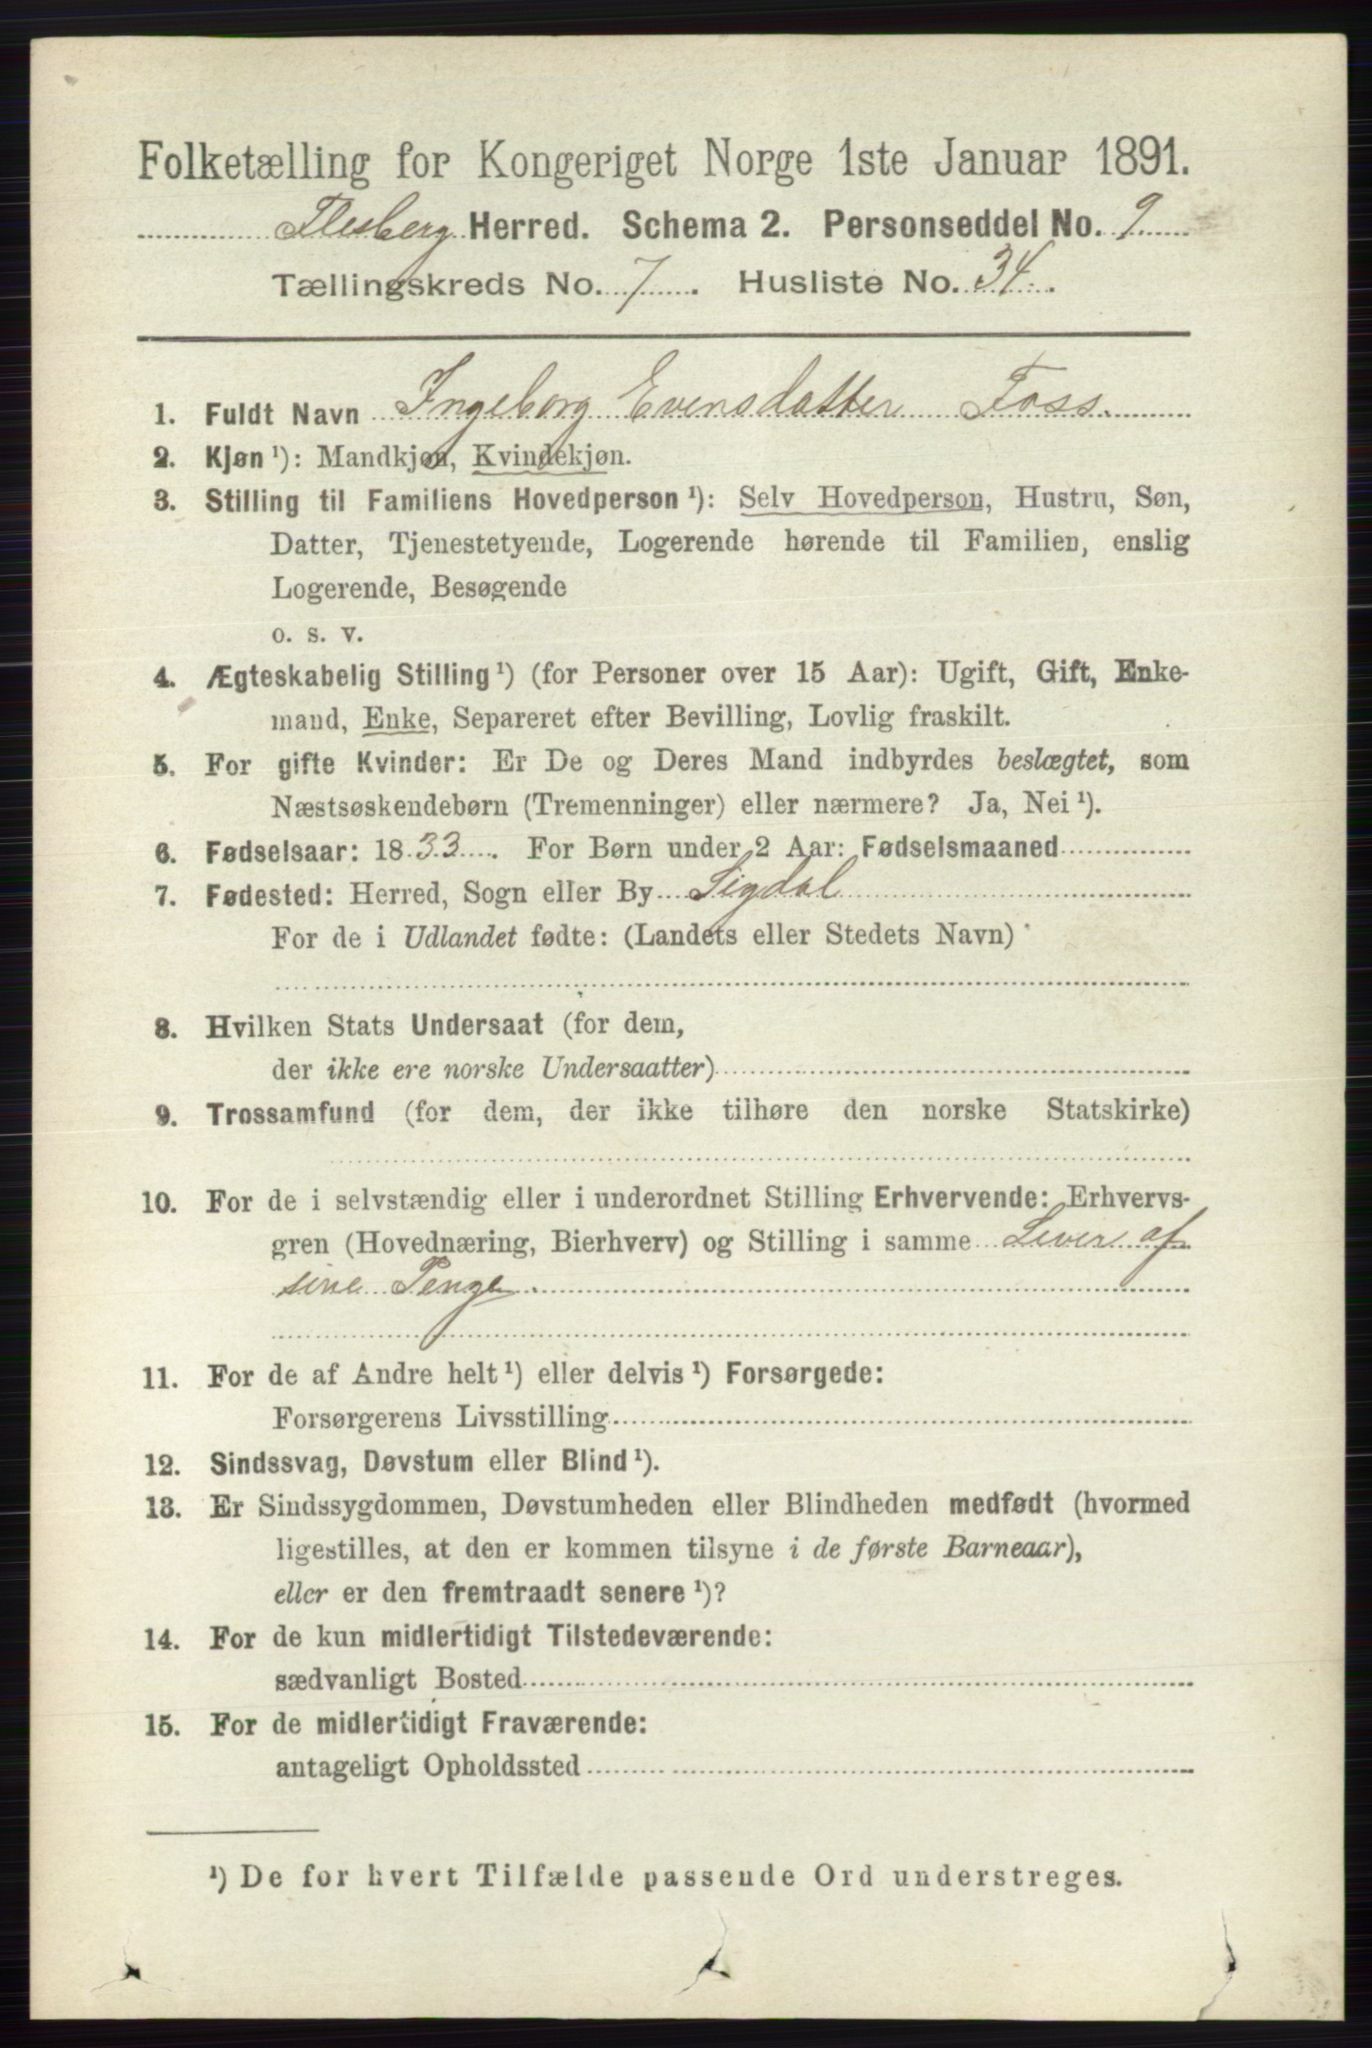 Folketælling for Kongeriget Norge 1ste Januar 1891.
Flesberg Herred. Schema 2. Personseddel No. 9
Tællingskreds No. 7. Husliste No. 34.
1. Fuldt Navn Ingeborg Evensdatter Foss.
2. Kjøn ¹): Mandkjøn, Kvindekjøn.
3. Stilling til Familiens Hovedperson ¹): Selv Hovedperson, Hustru, Søn,
Datter, Tjenestetyende, Logerende hørende til Familien, enslig
Logerende, Besøgende
o. s. v.
4. Ægteskabelig Stilling ¹) (for Personer over 15 Aar): Ugift, Gift, Enke-
mand, Enke, Separeret efter Bevilling, Lovlig fraskilt.
5. For gifte Kvinder: Er De og Deres Mand indbyrdes beslægtet, som
Næstsøskendebørn (Tremenninger) eller nærmere? Ja, Nei ¹).
6. Fødselsaar: 1833. For Børn under 2 Aar: Fødselsmaaned
7. Fødested: Herred, Sogn eller By Sigdal
For de i Udlandet fødte: (Landets eller Stedets Navn)
8. Hvilken Stats Undersaat (for dem,
der ikke ere norske Undersaatter)
9. Trossamfund (for dem, der ikke tilhøre den norske Statskirke)
10. For de i selvstændig eller i underordnet Stilling Erhvervende: Erhvervs-
gren (Hovednæring, Bierhverv) og Stilling i samme Lever af
sine Penge.
11. For de af Andre helt ¹) eller delvis ¹) Forsørgede:
Forsørgerens Livsstilling
12. Sindssvag, Døvstum eller Blind ¹).
13. Er Sindssygdommen, Døvstumheden eller Blindheden medfødt (hvormed
ligestilles, at den er kommen tilsyne i de første Barneaar),
eller er den fremtraadt senere ¹)?
14. For de kun midlertidigt Tilstedeværende:
sædvanligt Bosted
15. For de midlertidigt Fraværende:
antageligt Opholdssted
¹) De for hvert Tilfælde passende Ord understreges.